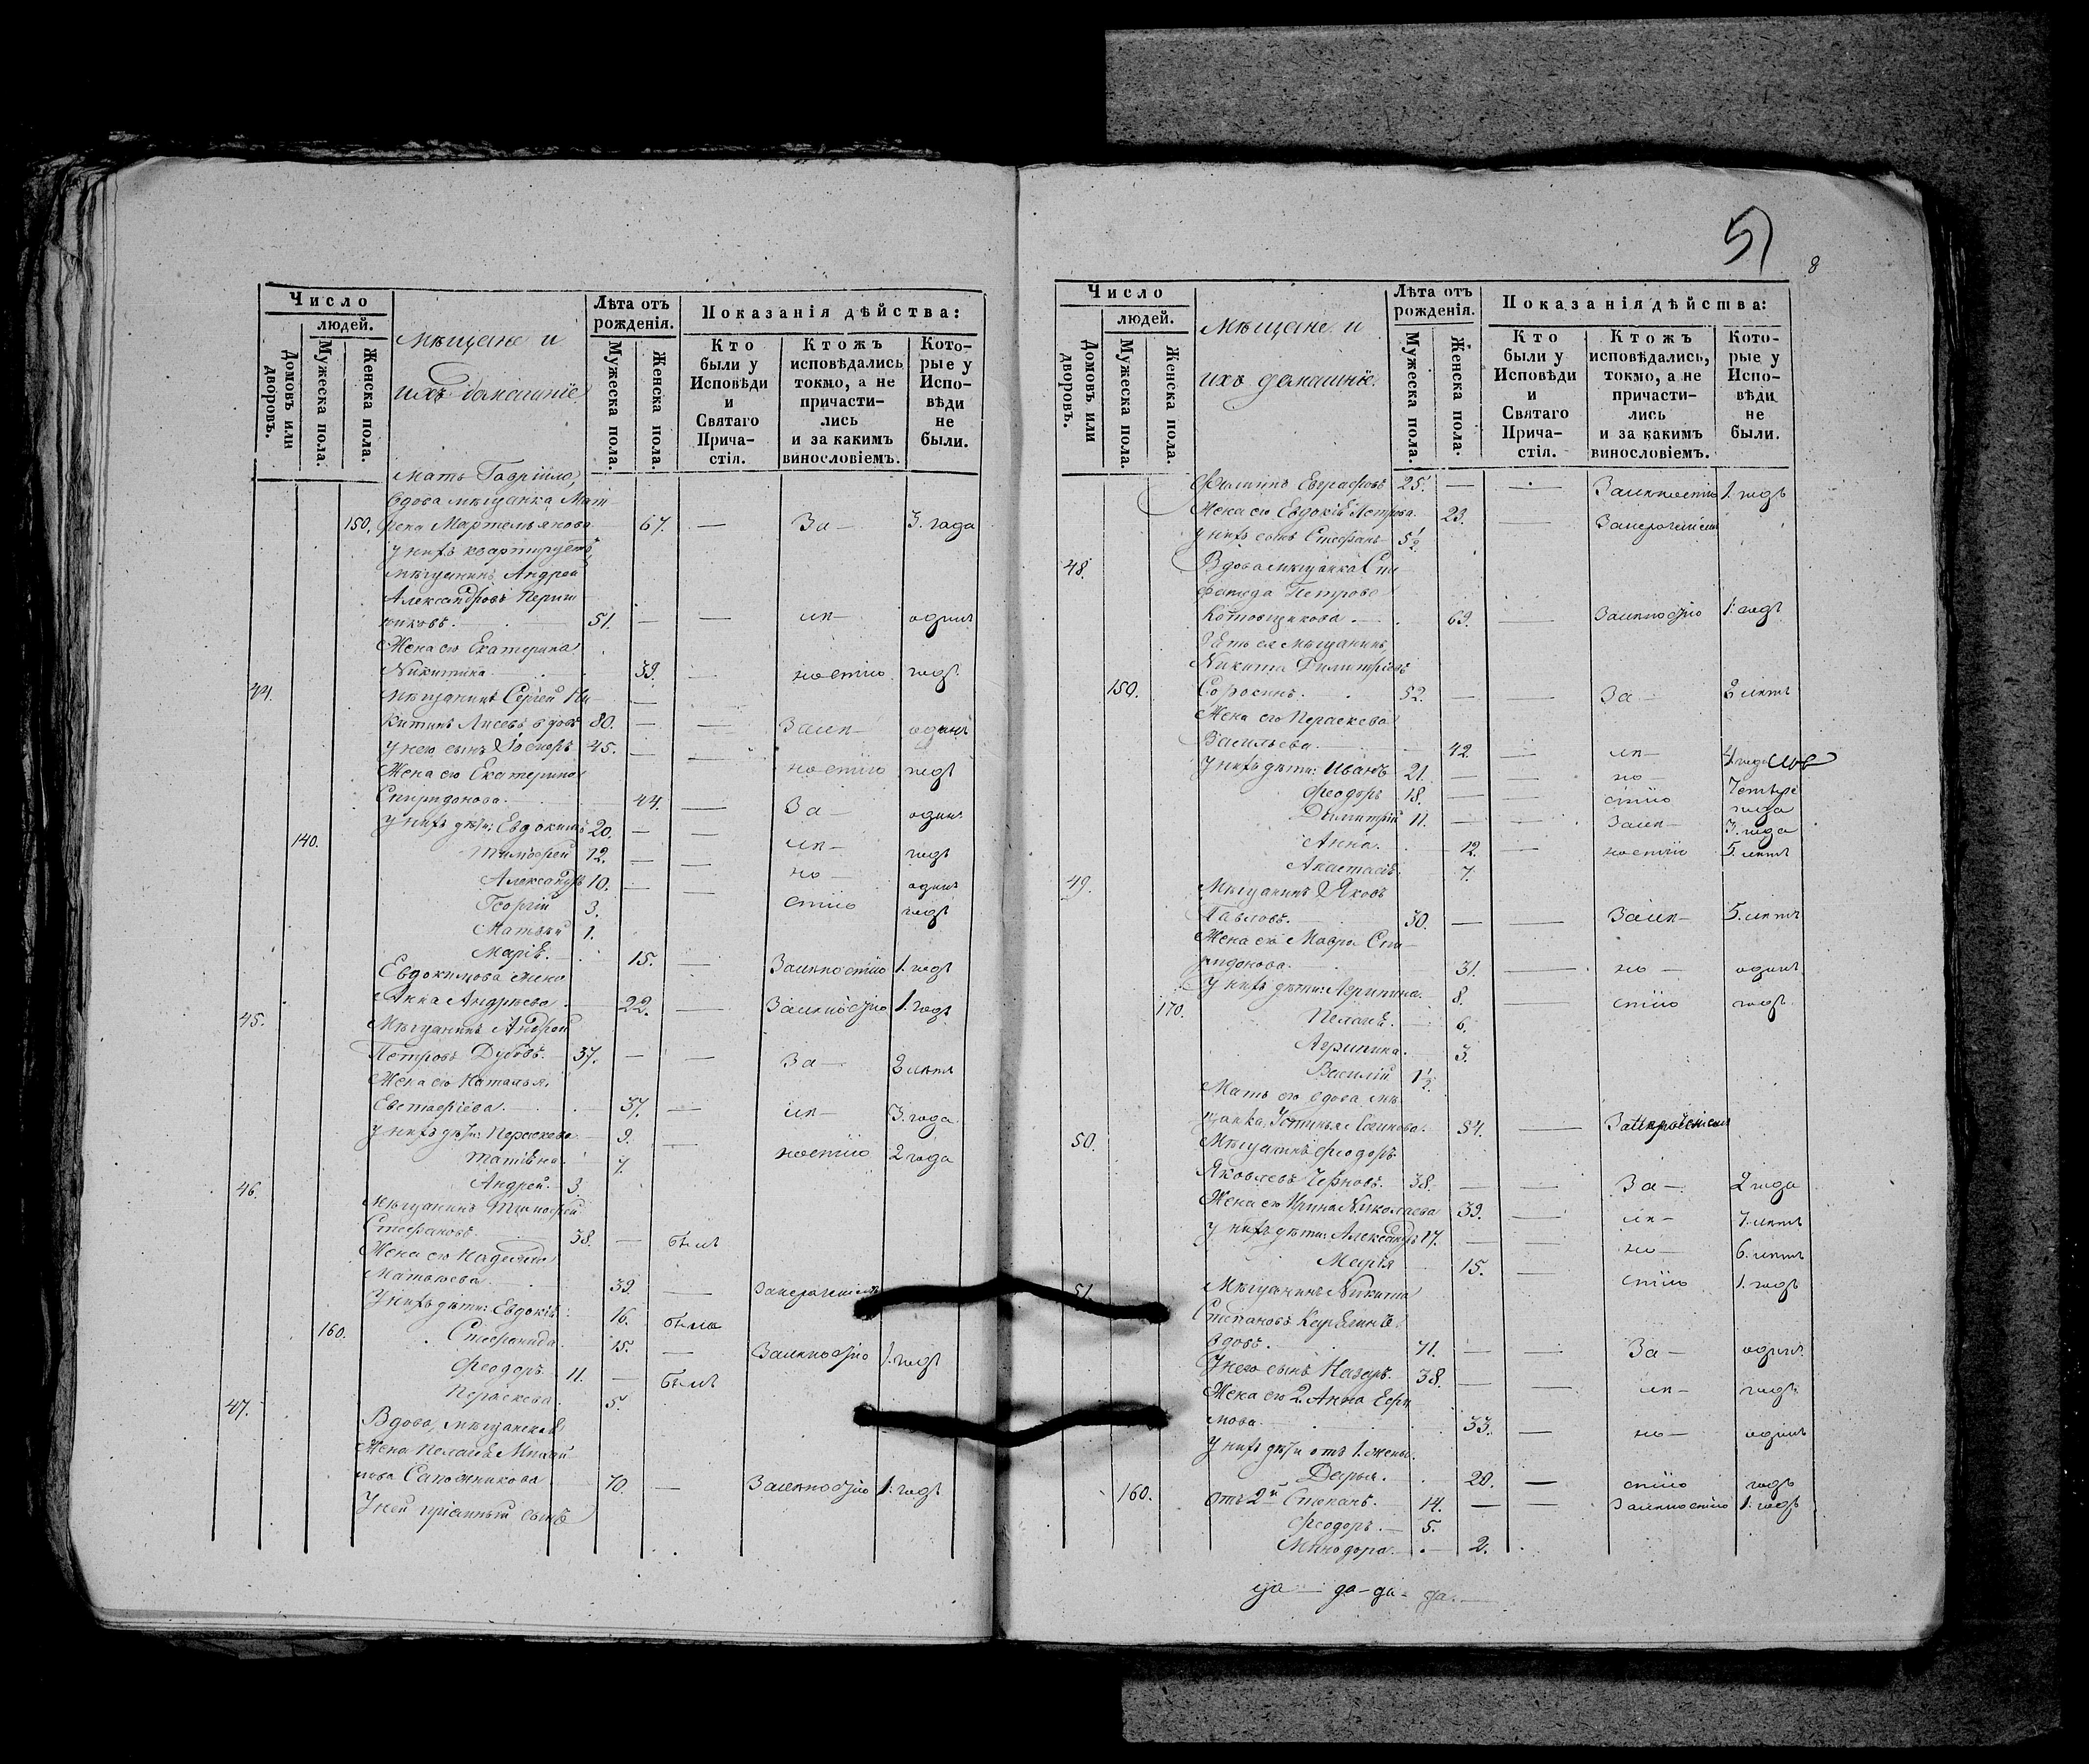 Число
людей.
Домовъ или дворовъ.
Мужеска пола.
Женска пола.
Мѣщане и
ихъ домашніе.
Лѣта отъ
рожденія.
Мужеска пола.
Женска пола.
Показанія дѣйства:
Кто
были у
Исповѣди
и
Святаго
Прича-
стія.
Ктожъ
исповѣдались
токмо, а не
причасти-
лись
и за какимъ
винословіемъ.
Кото-
рые у
Испо-
вѣди
не
были.
Мать Гавріила,
вдова мѣщанка Мат-
150. рена Мартемьянова 67. — За — 3. года
у нихъ квартируетъ
мѣщанинъ Андрей
Александровъ
51. — — лѣ— одинъ
Жена его Екатерина
Никитина. 39. — ностію годъ
44. Мѣщанинъ Сергей Ни-
китинъ Лисевъ вдовъ 80. — — Залѣ— одинъ
у него сынъ Ѳеодоръ 45. — — ностію годъ
Жена его Екатерина
Спиридонова. 44. — За — одинъ
у нихъ дѣти: Евдокимъ 20. — —
140. Тимофей 12. — — лѣ— годъ
Александръ 10. — — но— одинъ
Георгій 3. стію годъ
Матвѣй 1.
Марія. 15. — Залѣностію 1. годъ
Евдокимова жена
Анна Андреева 22. — Залѣностію 1. годъ
45. Мѣщанинъ Андрей
Петровъ Дубовъ. 37. — — За — 2 лѣтъ
Жена его Наталья
Евстафіева. 37. — лѣ— 3. года
у нихъ дѣти: Параскева 9. — ностію 2 года
Татіяна. 7.
Андрей. 3.
46. Мѣщанинъ Тимофей
Стефановъ. 38. — былъ
Жена его Надежда
Матвѣева. 39. — Запрощеніемъ
У нихъ дѣти: Евдокія. 16. была
160. Стефанида. 15. — Залѣностію 1. годъ
Феодоръ. 11. — былъ
Параскева. 5.
47. Вдова, мѣщанская
жена Пелагія Михай-
лова Сапожникова. 70. — Залѣностію 1. годъ
У ней пріемный сынъ
51
8
Число
людей.
Домовъ или дворовъ.
Мужеска пола.
Женска пола.
Мѣщане и
ихъ домашніе.
Лѣта отъ
рожденія.
Мужеска пола.
Женска пола.
Показанія дѣйства:
Кто
были у
Исповѣди
и
Святаго
Прича-
стія.
Ктожъ
исповѣдались,
токмо, а не
причасти-
лись
и за какимъ
винословіемъ.
Кото-
рые у
Испо-
вѣди
не
были.
Филиппъ Евграфовъ 25. — — Залѣностію 1. годъ
Жена его Евдокія Петрова. 23. —
у нихъ сынъ Стефанъ 5½
48. Вдова мѣщанка
Петрова
69. — Залѣностію 1. годъ
Зять ея мѣщанинъ
Никита Димитріевъ
150. Соросинъ. 52. — — За — 2 лѣтъ
Жена его Параскева
Васильева. 42. — лѣ— 4 года
У нихъ дѣти: Иванъ 21. — — но—
Феодоръ 18. — — стію года
Димитрій 11. — — Залѣ— 3. года
Анна. 12. — ностію 5. лѣтъ
Анастасія. 7.
49. Мѣщанинъ Яковъ
Павловъ. 30. — — Залѣ— 5. лѣтъ
Жена его Мавра Спи-
ридонова. 31. — но— одинъ
У нихъ дѣти: 8. — стію годъ
170. Пелагія. 6.
Агрипина. 3.
Василій 1½
Мать его вдова мѣ-
щанка, Устинья 54. —
50. Мѣщанинъ Феодоръ
Яковлевъ Черновъ. 38. — — За — 2 года
Жена его Ирина Николаева 39. — лѣ— 7. лѣтъ
у нихъ дѣти: Александръ 17. — — но— 6. лѣтъ
Марія 15. — стію 1. годъ
51. Мѣщанинъ Никита
Степановъ
вдовъ. 71. — — За — одинъ
У него сынъ Назаръ. 38. — — лѣ— годъ
Жена его 2. Анна Ефи-
мова. 33. — но— одинъ
У нихъ дѣти отъ 1. жены.
Дарья. 20. — стію годъ
160. отъ 2й Степанъ. 14. — — Залѣностію 1. годъ
Феодоръ. 5.
Минодора. 2.